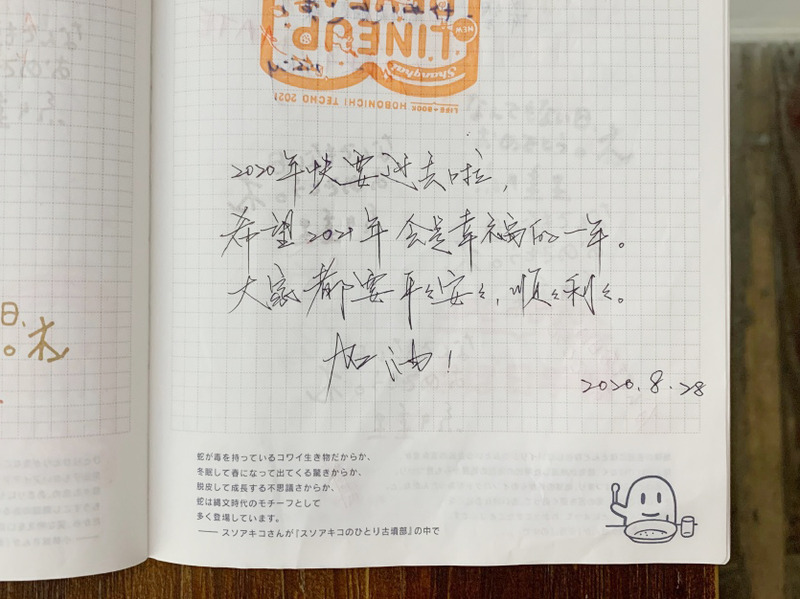 LIFE BOOK HOBONICHI TECHO 2021
Shanghai
LINEUP
NEW
2020年快要过去啦，
希望2021年会是幸福的一年。
大家都要平々安々，顺々利々。
加油！
2020.8.28
日
。木
蛇が毒を持っているコワイ生き物だからか、
冬眠して春になって出てくる驚きからか、
脱皮して成長する不思議さからか、
蛇は縄文時代のモチーフとして
多く登場しています。
—— スソアキコさんが『スソアキコのひとり古墳部』の中で